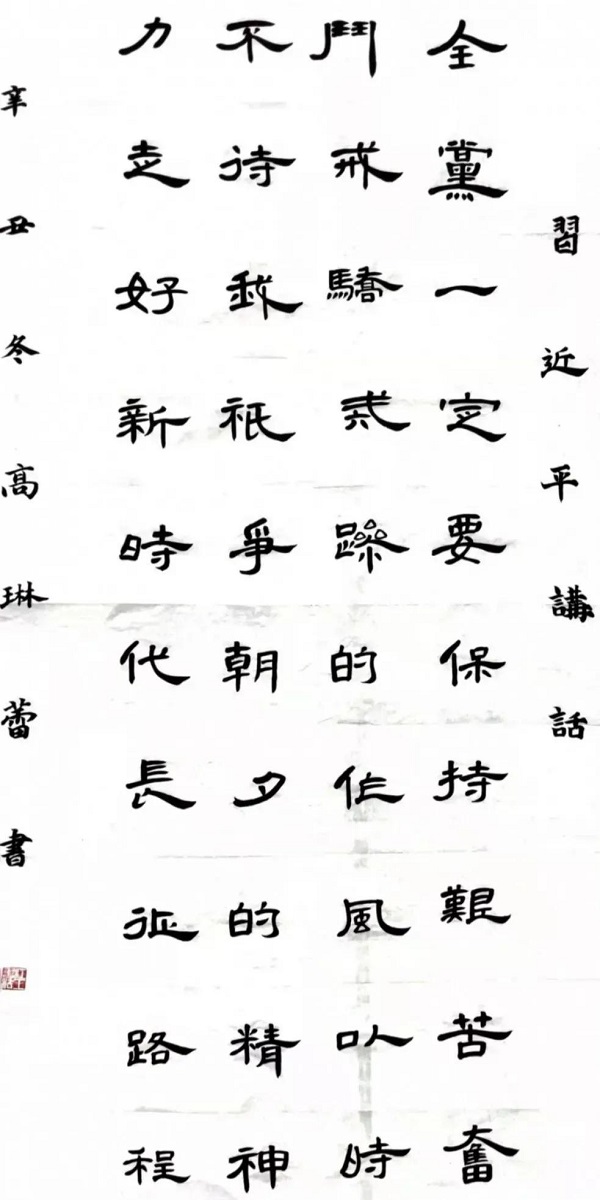 習近平講話
全黨一定要保持艱苦奮
鬥戒驕戒躁的作風以時
不待我祇爭朝夕的精神
力走好新時代長征路程
辛丑冬高琳蕾書